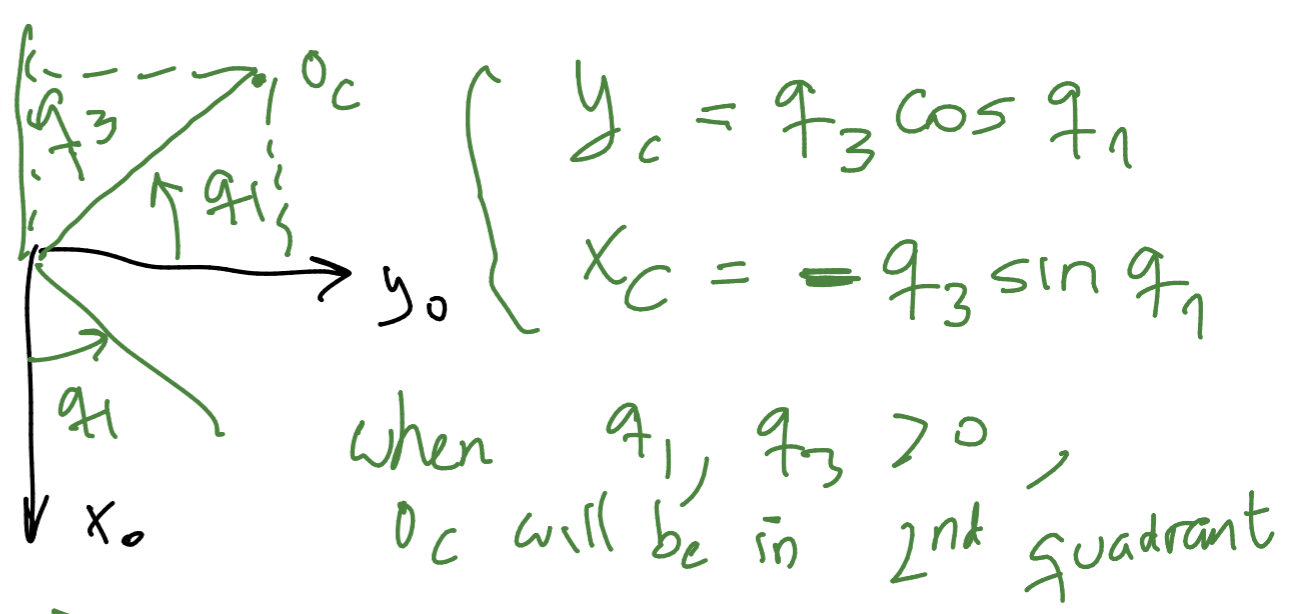 O_C
q_3
q_1
y_0
q_1
x_0
y_c = q_3 cos q_1
x_C = - q_3 sin q_1
when q_1, q_3 > 0,
O_C will be in 2nd quadrant